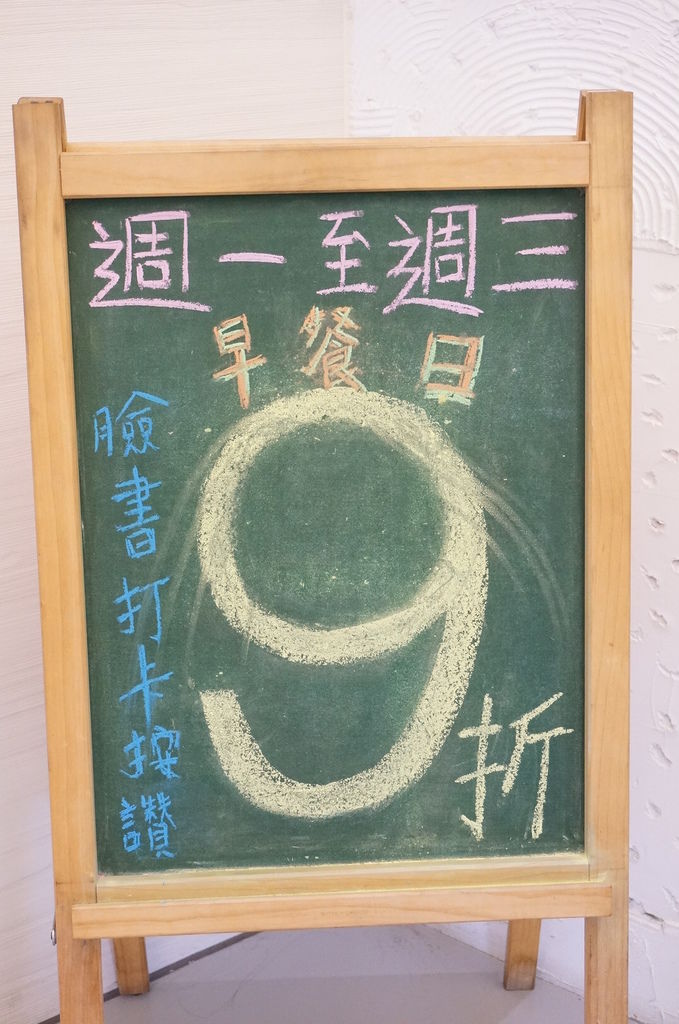 週一至週三
早餐日
9折
臉書打卡按讚